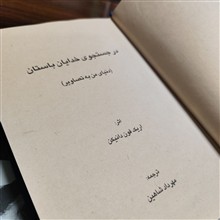 در جستجوی خدایان باستان
(دنیای من به تصاویر)
اثر:
اریک فون دانیکن
ترجمه
مهرداد شاهین